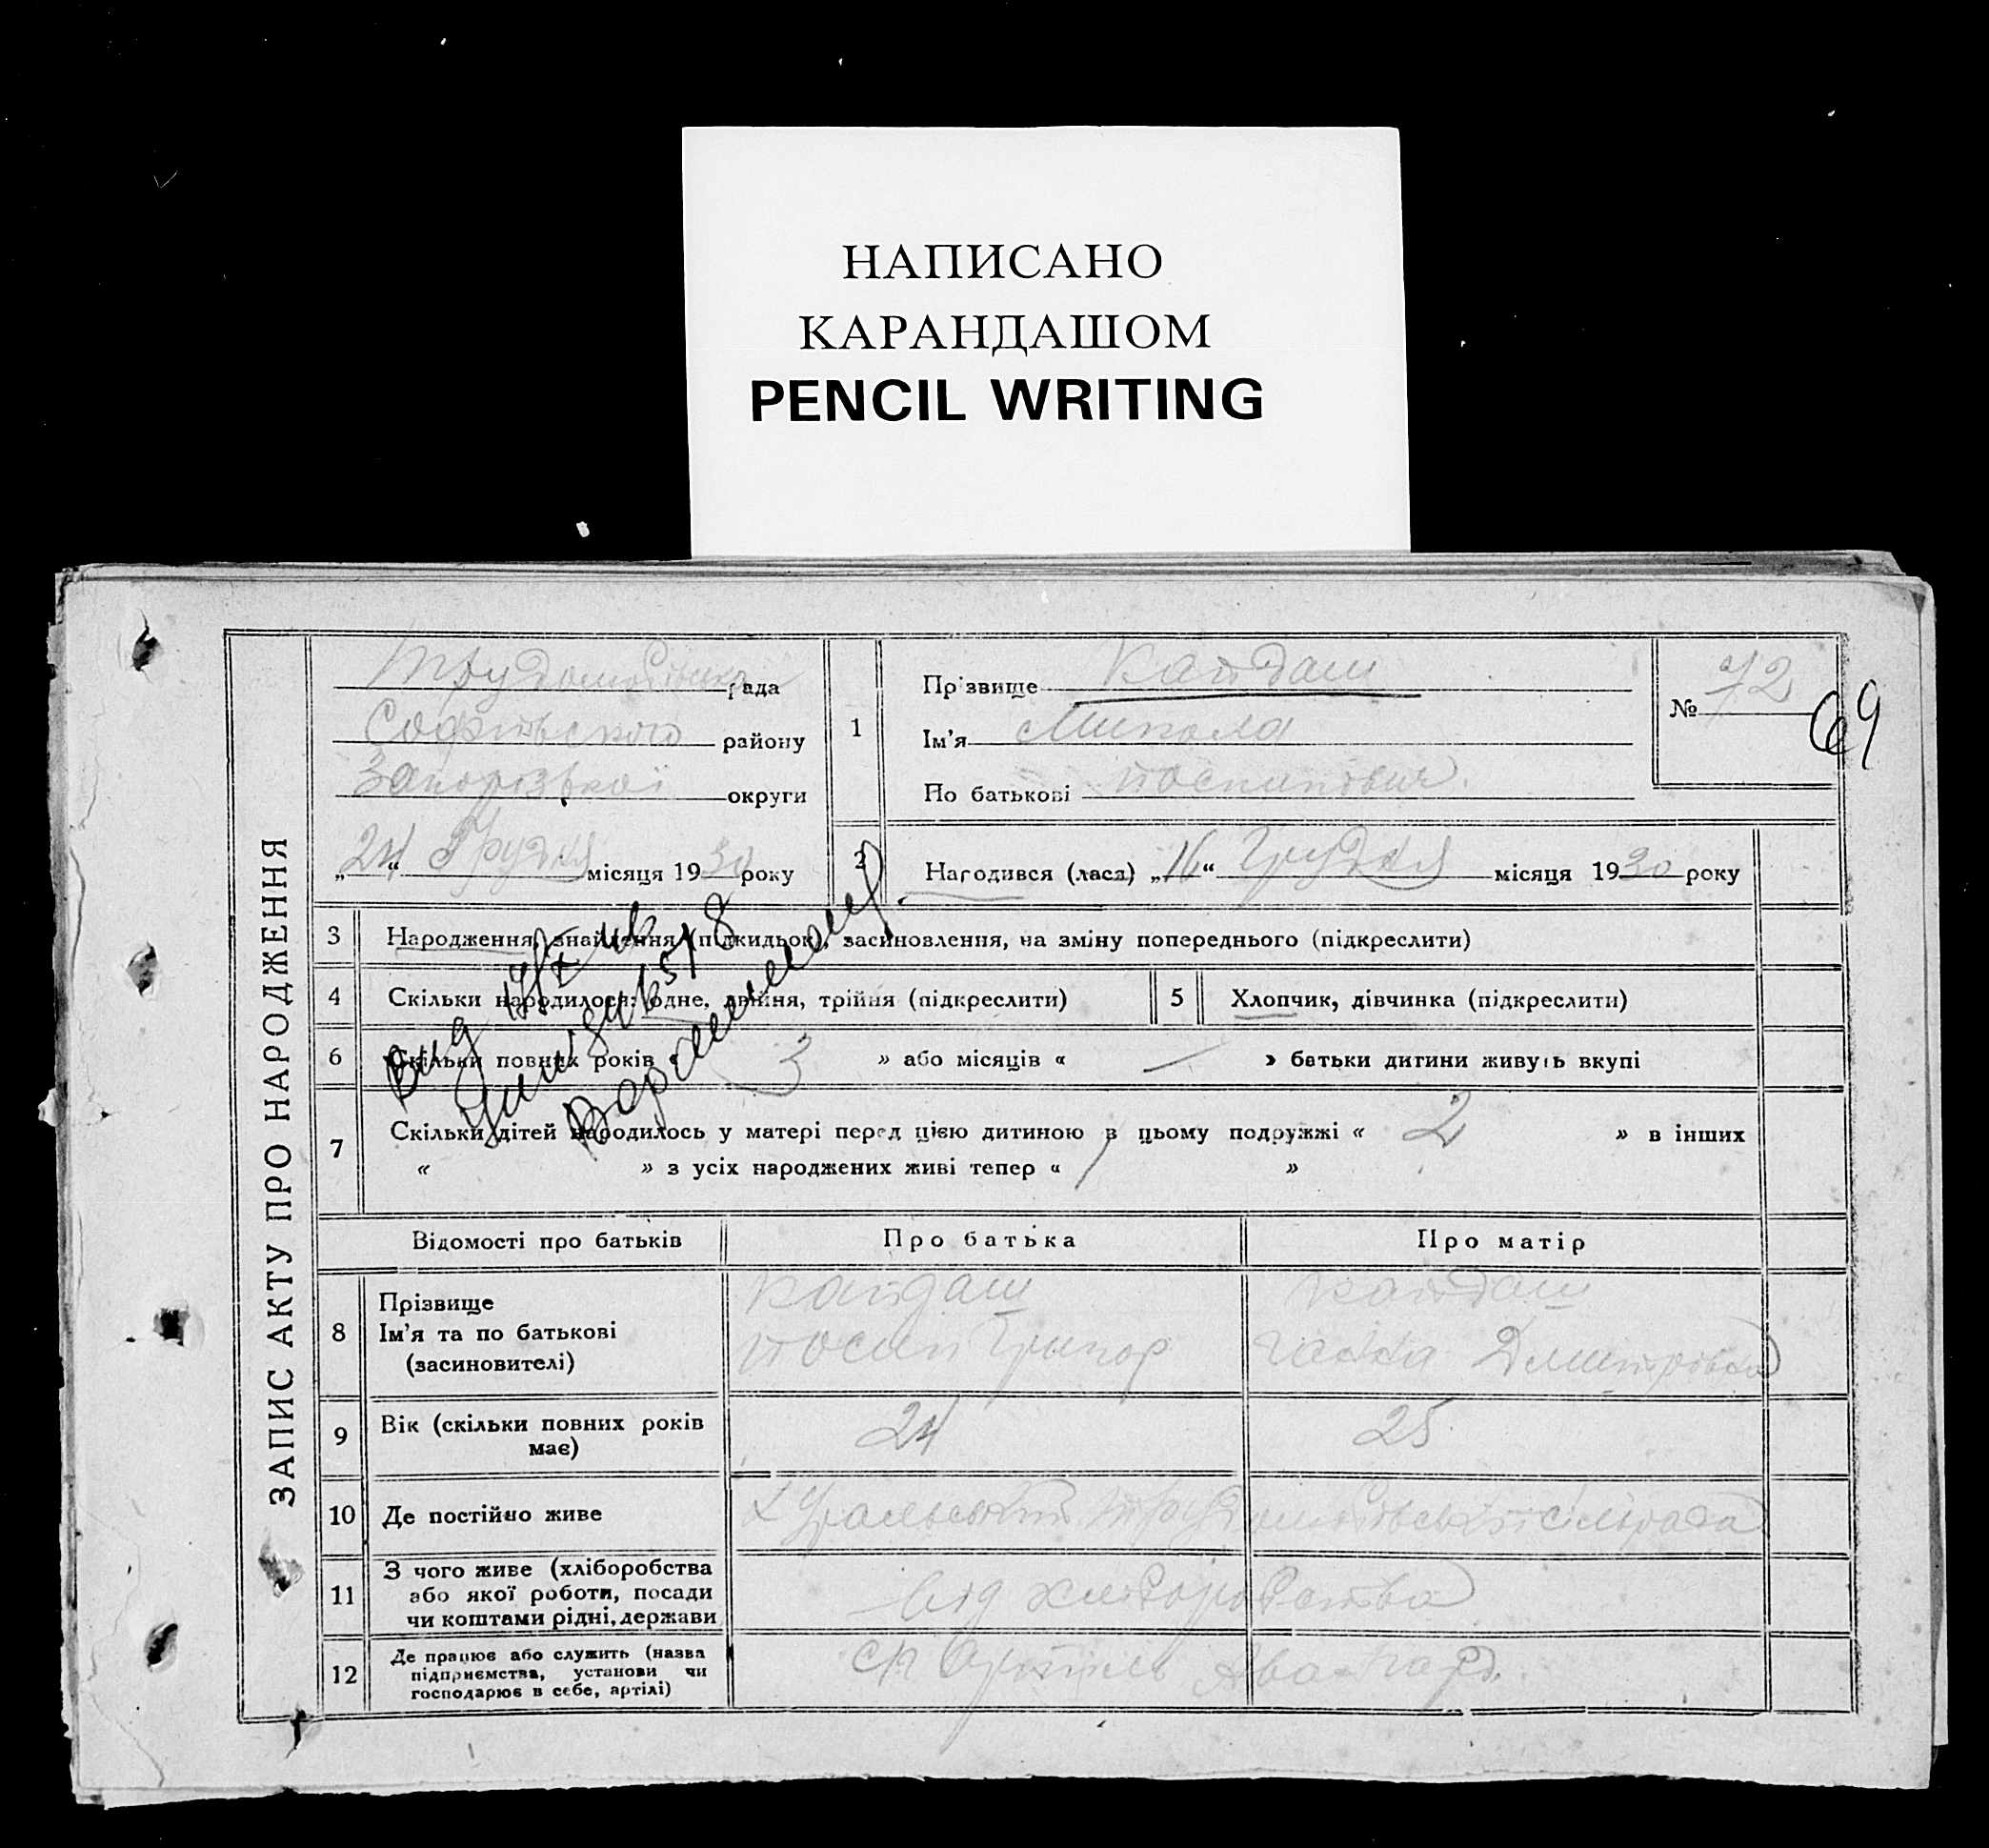 НАПИСАНО
КАРАНДАШОМ
PENCIL WRITING
ЗАПИС АКТУ ПРО НАРОДЖЕННЯ
рада
Софіївського району
Запорізької округи
„24“ Грудня місяця 1930 року
1
Прізвище Кайдаш
Ім’я Микола
По батькові Йосипович
№ 72
69
2
Народився (лася) „16“ Грудня місяця 1930 року
3 Народження, знайдення (підкидьок), засиновлення, на зміну попереднього (підкреслити)
4 Скільки народилося: одне, двійня, трійня (підкреслити)
5 Хлопчик, дівчинка (підкреслити)
6 Скільки повних років « 3 » або місяців « — » батьки дитини живуть вкупі
7 Скільки дітей народилось у матері перед цією дитиною в цьому подружжі « 2 » в інших
« » з усіх народжених живі тепер « 1 »
Відомості про батьків
Про батька
Про матір
8 Прізвище
Ім’я та по батькові
(засиновителі)
Кайдаш
Йосип Григор
Кайдаш
Ганна Дмитрівна
9 Вік (скільки повних років
має)
24
25
10 Де постійно живе
11 З чого живе (хліборобства
або якої роботи, посади
чи коштами рідні, держави
від хліборобства
12 Де працює або служить (назва
підприємства, установи чи
господарює в себе, артілі)
с/г Артіль Авангард